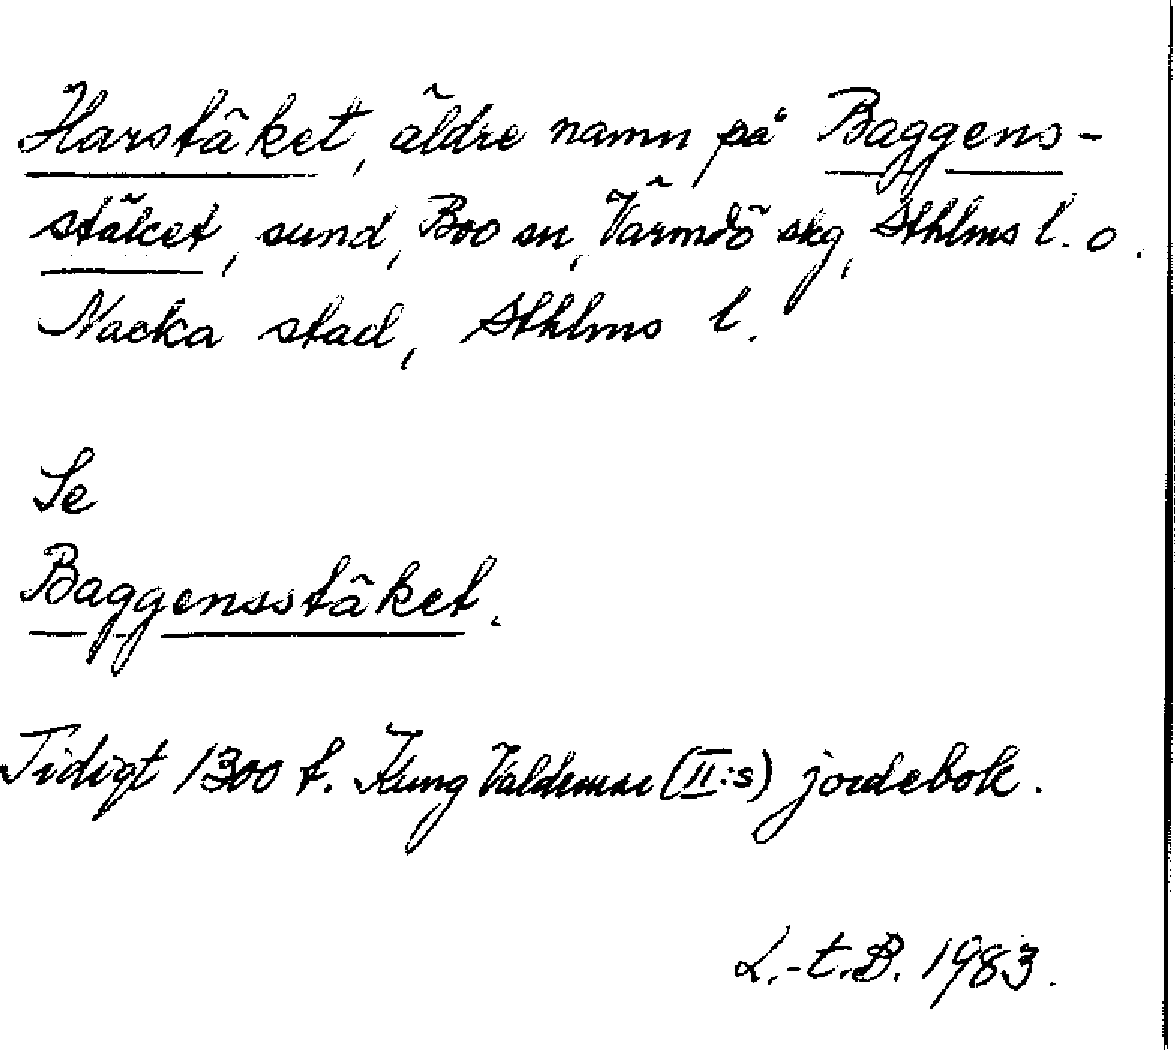 Harstäket, äldre namn på Baggens-
stäket, sund, Boo sn, Värmdö skg, Sthlms l. o.
Nacka stad, Sthlms l.
Se
Baggensstäket.
Tidigt 1300 t. Kung Valdemar (II:s) jordebok.
L.-t.B. 1983.